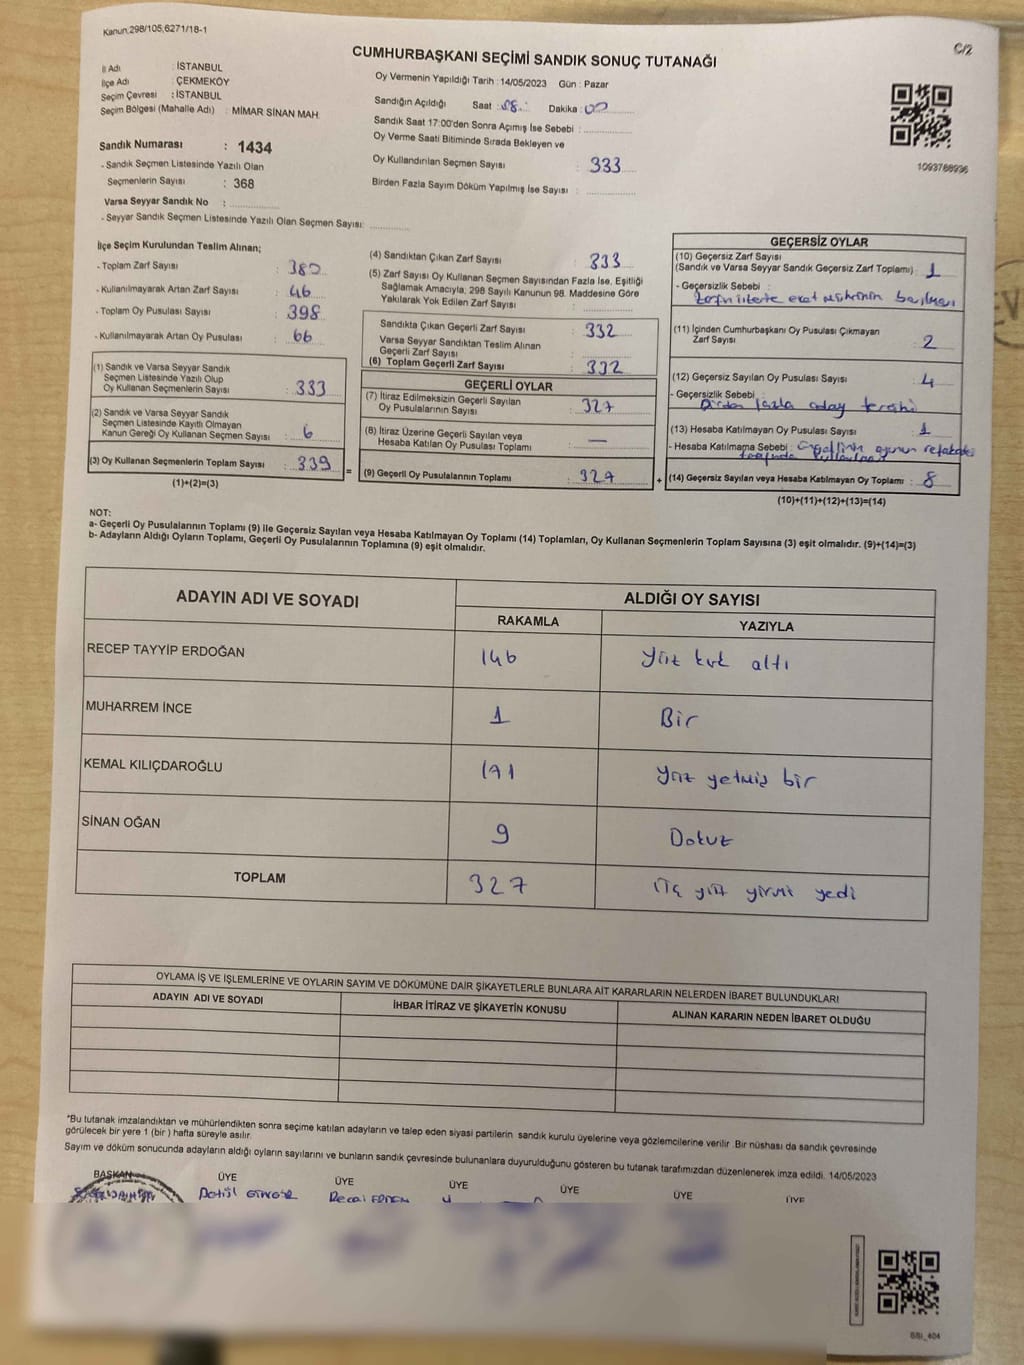 Kanun,298/105,6271/18-1
C/2
CUMHURBAŞKANI SEÇİMİ SANDIK SONUÇ TUTANAĞI
İl Adı : İSTANBUL
İlçe Adı : ÇEKMEKÖY
Seçim Çevresi : İSTANBUL
Seçim Bölgesi (Mahalle Adı) : MİMAR SİNAN MAH.
Oy Vermenin Yapıldığı Tarih : 14/05/2023 Gün : Pazar
Sandığın Açıldığı Saat : 08. Dakika : 00
Sandık Saat 17:00'den Sonra Açımış İse Sebebi :
Oy Verme Saati Bitiminde Sırada Bekleyen ve
Oy Kullandırılan Seçmen Sayısı : 333
Birden Fazla Sayım Döküm Yapılmış İse Sayısı :
1093768936
Sandık Numarası : 1434
- Sandık Seçmen Listesinde Yazılı Olan
Seçmenlerin Sayısı : 368
Varsa Seyyar Sandık No :
- Seyyar Sandık Seçmen Listesinde Yazılı Olan Seçmen Sayısı:
İlçe Seçim Kurulundan Teslim Alınan;
- Toplam Zarf Sayısı : 380
- Kullanılmayarak Artan Zarf Sayısı : 46
- Toplam Oy Pusulası Sayısı : 398
- Kullanılmayarak Artan Oy Pusulası : 66
(1) Sandık ve Varsa Seyyar Sandık
Seçmen Listesinde Yazılı Olup
Oy Kullanan Seçmenlerin Sayısı : 333
(2) Sandık ve Varsa Seyyar Sandık
Seçmen Listesinde Kayıtlı Olmayan
Kanun Gereği Oy Kullanan Seçmen Sayısı : 6
(3) Oy Kullanan Seçmenlerin Toplam Sayısı : 339
(1)+(2)=(3)
(4) Sandıktan Çıkan Zarf Sayısı : 333
(5) Zarf Sayısı Oy Kullanan Seçmen Sayısından Fazla İse, Eşitliği
Sağlamak Amacıyla; 298 Sayılı Kanunun 98. Maddesine Göre
Yakılarak Yok Edilen Zarf Sayısı :
Sandıkta Çıkan Geçerli Zarf Sayısı : 332
Varsa Seyyar Sandıktan Teslim Alınan
Geçerli Zarf Sayısı :
(6) Toplam Geçerli Zarf Sayısı : 332
GEÇERLİ OYLAR
(7) İtiraz Edilmeksizin Geçerli Sayılan
Oy Pusulalarının Sayısı : 327
(8) İtiraz Üzerine Geçerli Sayılan veya
Hesaba Katılan Oy Pusulası Toplamı : —
= (9) Geçerli Oy Pusulalarının Toplamı : 327
GEÇERSİZ OYLAR
(10) Geçersiz Zarf Sayısı
(Sandık ve Varsa Seyyar Sandık Geçersiz Zarf Toplamı) : 1
- Geçersizlik Sebebi :
(11) İçinden Cumhurbaşkanı Oy Pusulası Çıkmayan
Zarf Sayısı : 2
(12) Geçersiz Sayılan Oy Pusulası Sayısı : 4
- Geçersizlik Sebebi :
Birden fazla aday tercihi
(13) Hesaba Katılmayan Oy Pusulası Sayısı : 1
- Hesaba Katılmama Sebebi : oyunun
tarafından
+ (14) Geçersiz Sayılan veya Hesaba Katılmayan Oy Toplamı : 8
(10)+(11)+(12)+(13)=(14)
NOT:
a- Geçerli Oy Pusulalarının Toplamı (9) ile Geçersiz Sayılan veya Hesaba Katılmayan Oy Toplamı (14) Toplamları, Oy Kullanan Seçmenlerin Toplam Sayısına (3) eşit olmalıdır. (9)+(14)=(3)
b- Adayların Aldığı Oyların Toplamı, Geçerli Oy Pusulalarının Toplamına (9) eşit olmalıdır.
ADAYIN ADI VE SOYADI ALDIĞI OY SAYISI
RAKAMLA YAZIYLA
RECEP TAYYİP ERDOĞAN 146 Yüz kırk altı
MUHARREM İNCE 1 Bir
KEMAL KILIÇDAROĞLU 171 Yüz yetmiş bir
SİNAN OĞAN 9 Dokuz
TOPLAM 327 Üç yüz yirmi yedi
OYLAMA İŞ VE İŞLEMLERİNE VE OYLARIN SAYIM VE DÖKÜMÜNE DAİR ŞİKAYETLERLE BUNLARA AİT KARARLARIN NELERDEN İBARET BULUNDUKLARI
ADAYIN ADI VE SOYADI İHBAR İTİRAZ VE ŞİKAYETİN KONUSU ALINAN KARARIN NEDEN İBARET OLDUĞU
*Bu tutanak imzalandıktan ve mühürlendikten sonra seçime katılan adayların ve talep eden siyasi partilerin sandık kurulu üyelerine veya gözlemcilerine verilir Bir nüshası da sandık çevresinde
görülecek bir yere 1 (bir ) hafta süreyle asılır.
Sayım ve döküm sonucunda adayların aldığı oyların sayılarını ve bunların sandık çevresinde bulunanlara duyurulduğunu gösteren bu tutanak tarafımızdan düzenlenerek imza edildi. 14/05/2023
BAŞKAN ÜYE ÜYE ÜYE ÜYE ÜYE ÜYE
SSI_404